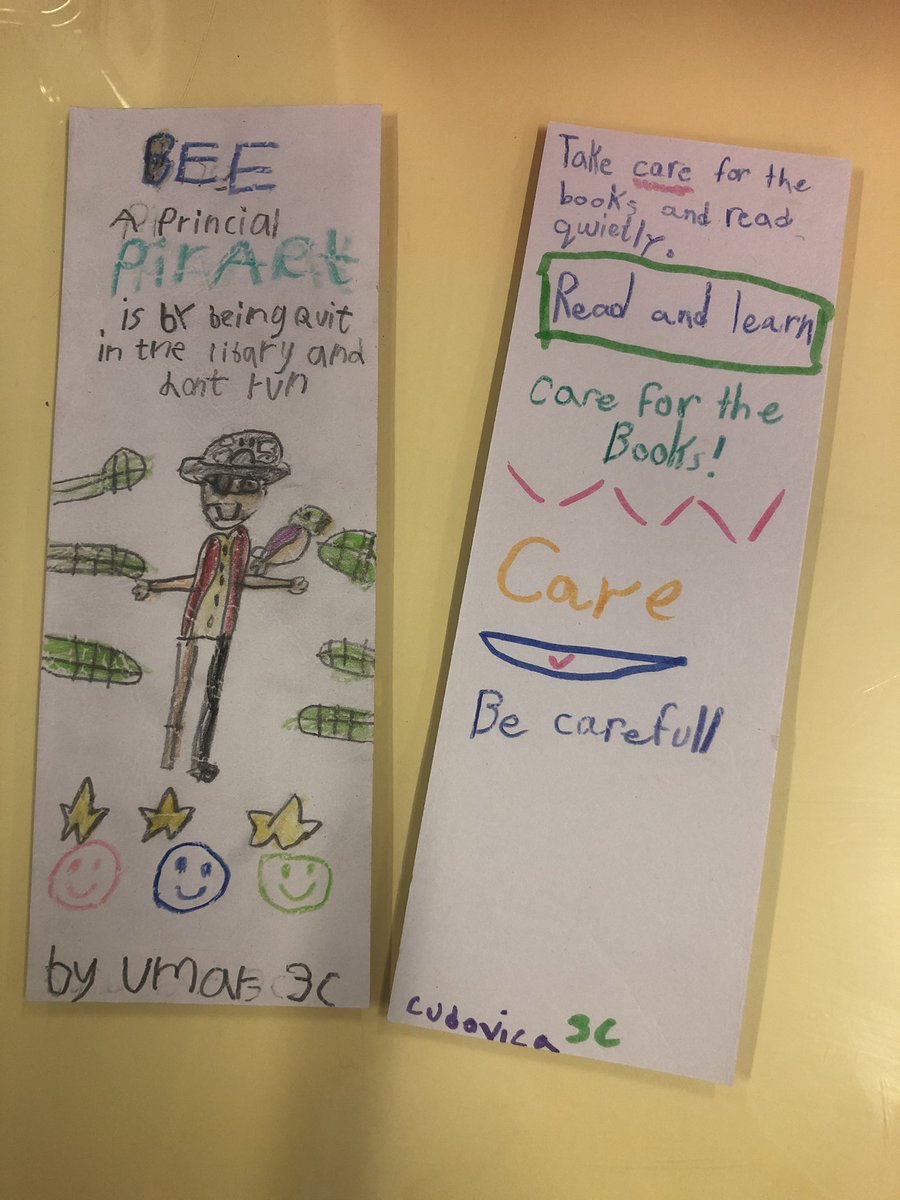 BEE
A Princial
PirAet
is by being Quit
in the libary and
dont run
by Umar 3C
Take care for the
books and read
qwietly.
Read and learn
Care for the
Books!
Care
Be carefull
Cudovica 3C